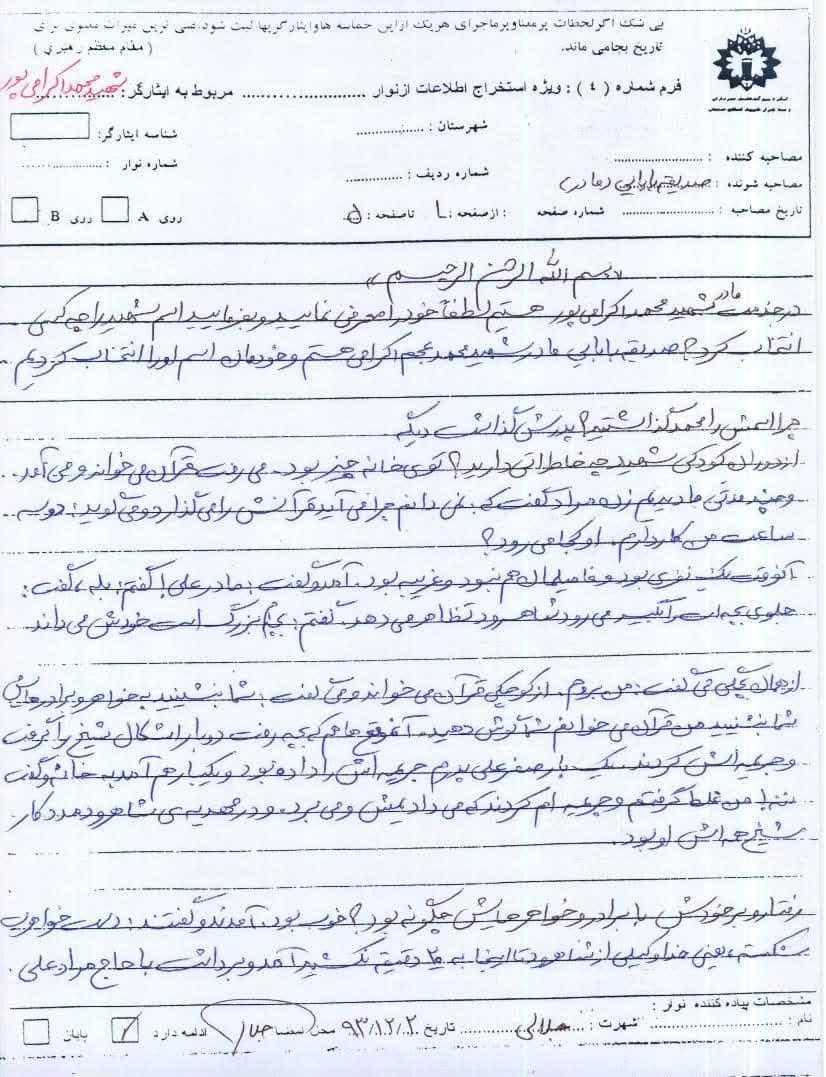 بی شک اگر لحظات پرمعنا و پرماجرای هر یک از این حماسه ها و ایثارگریها ثبت شود، غنی ترین میراث معنوی برای
تاریخ بجا می ماند. ( مقام معظم رهبری )
فرم شماره ( ٤ ) : ویژه استخراج اطلاعات از نوار ........................ مربوط به ایثارگر: شهید محمد اکرامی پور
شهرستان : ................
شناسه ایثارگر:
مصاحبه کننده : ........................
شماره ردیف : ................
شماره نوار : ....................
مصاحبه شونده : صدیقه بابایی (مادر)
تاریخ مصاحبه : ........................ شماره صفحه : از صفحه : ۱ تا صفحه : ۵
روی A روی B
«بسم الله الرحمن الرحیم»
در خدمت مادر شهید محمد اکرامی پور هستیم لطفاً خود را معرفی نمایید و بفرمایید اسم شهید را چه کسی
انتخاب کرد؟ صدیقه بابایی مادر شهید محمد اکرامی هستم و خودمان اسم او را انتخاب کردیم
چرا اسمش را محمد گذاشتید؟ پدرش گذاشت دیگه.
از دوران کودکی شهید چه خاطراتی دارید؟ توی خانه چیز بود. می رفت قرآن می خواند و می آمد.
و چند مدتی ما دیدیم زن مراد گفت که: نمی دانم چرا می آید قرآنش را می گذارد و می گوید: دو سه
ساعت من کار دارم. او کجا می رود؟
آنوقت یک نفری بود و فامیلمان هم نبود و غریبه بود. آمد و گفت: مادر علی! گفتم: بله، گفت:
جلوی بچه ات را بگیر می رود شاهرود تظاهر می دهد. گفتم: بچه بزرگ است خودش می داند.
از همان بچگی می گفت: من بروم. از کوچکی قرآن می خواند و می گفت: شما بنشینید به خواهر و برادرهایش
شما بنشینید من قرآن می خوانم شما گوش دهید. آنموقع ها هم که بچه رفت دوبار اشکال شیخ را گرفت
و جریمه اش کردند. یک بار صفر علی پدرم جریمه اش را داده بود و یکبار هم آمد به خانه و گفت
ننه! من غلط گرفتم و جریمه ام کردند که می دادیمش و می برد. و در مهدیه ی شاهرود مددکار
شیخ همه اش او بود.
رفتار و برخوردش با برادر و خواهرهایش چگونه بود؟ خوب بود. آمدند و گفتند: دست خواهرت
شکسته، یعنی خدا وکیلی از شاهرود تا اینجا به ۲۵ دقیقه نکشید آمد و برداشت با حاج مراد علی.
مشخصات پیاده کننده نوار :
نام : ........................ شهرت : جلالی تاریخ ۹۳/۱۲/۲ محل امضا ادامه دارد پایان